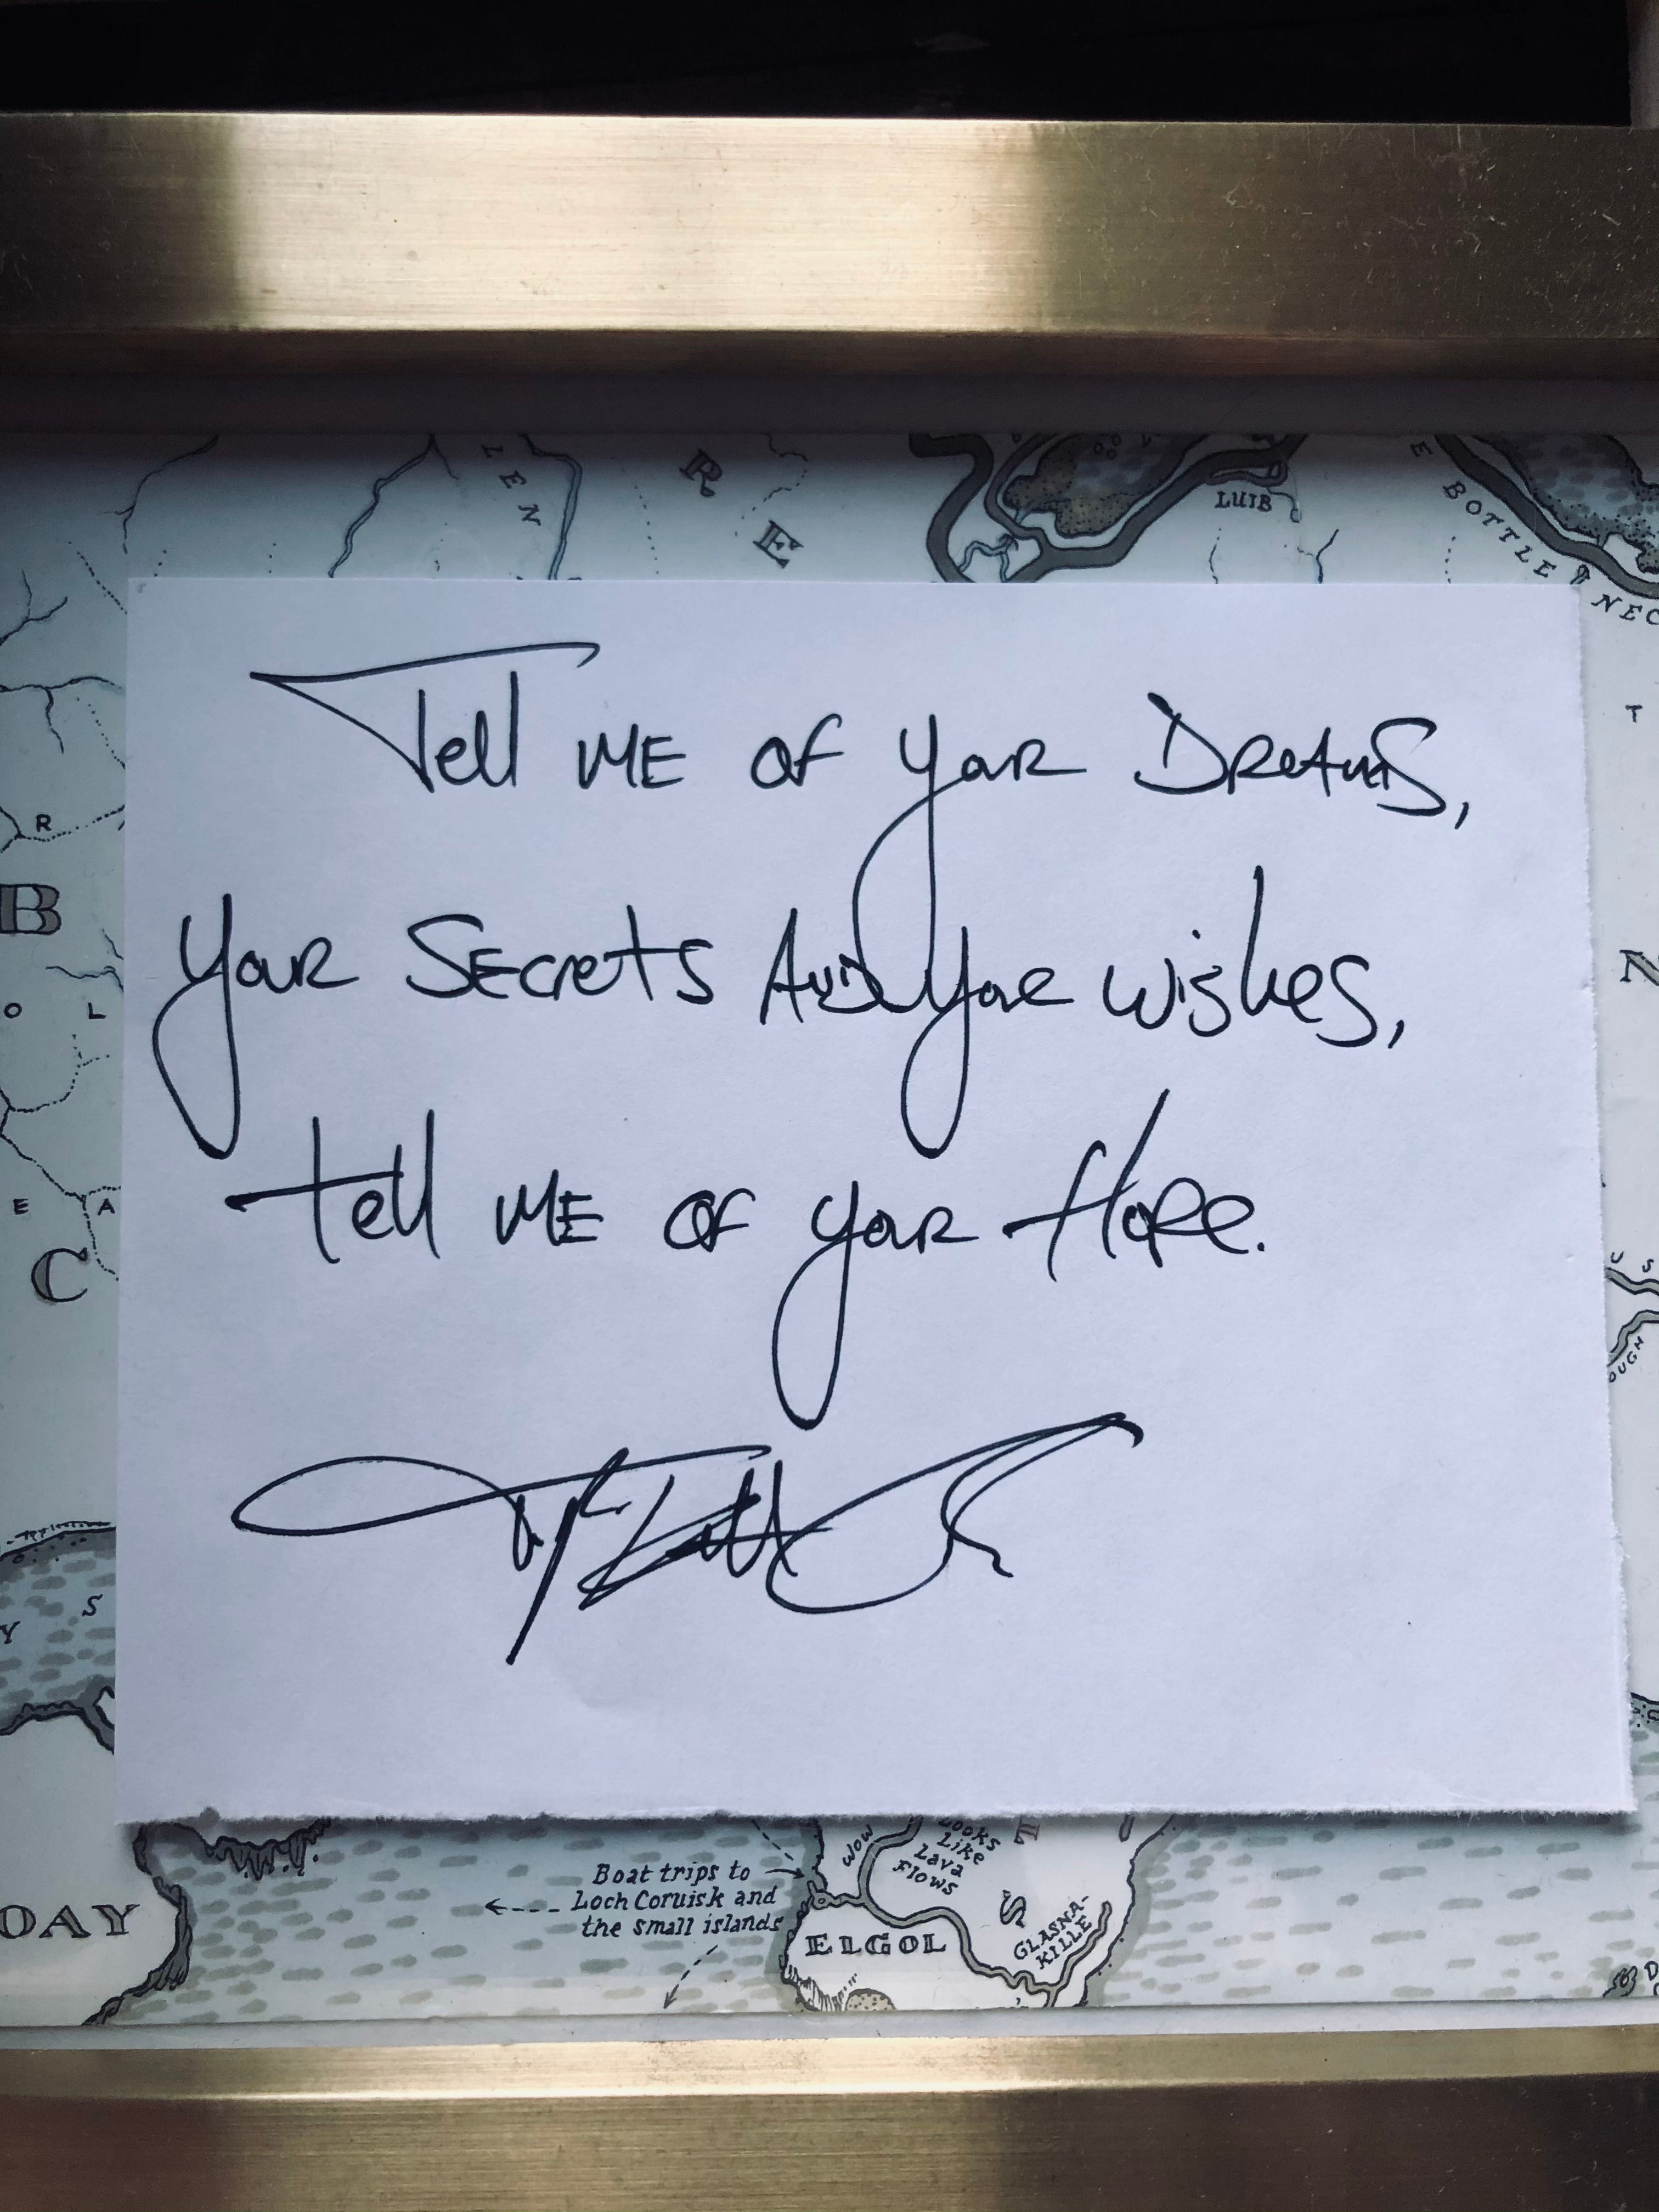 LEN
R
E
LUIB
E
BOTTLE NEC
T
Tell ME OF your DREAMS,
R
B
your SECretS AND your wishes,
N
O L
tell ME OF your Hope.
E A
C
U S
OUGH
S
Y
Looks
Like
Lava
Flows
WOW
Boat trips to
Loch Coruisk and
the small islands
S
GLASNA-
KILLE
OAY
ELGOL
D